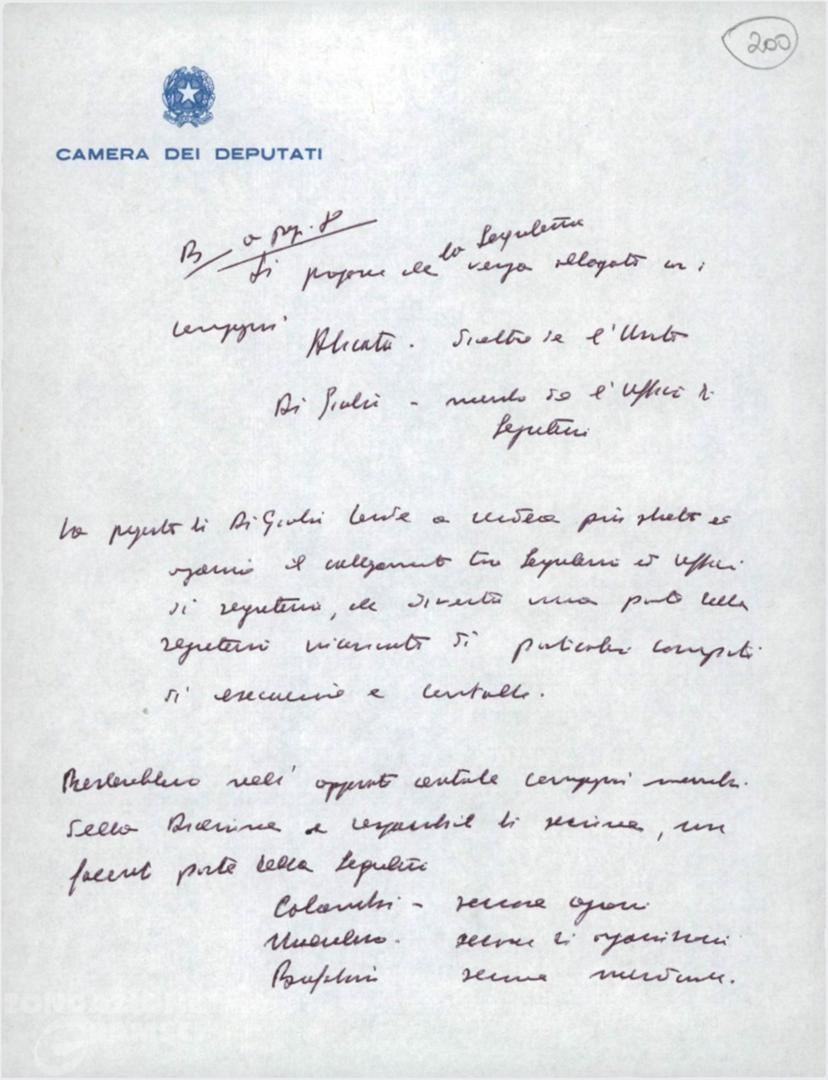 200
CAMERA DEI DEPUTATI
B a pag. 8
la Segreteria
Si propone che venga allargata con i
compagni
Alicata - direttore de l'Unità
Di Giulio - membro de l'Ufficio di
Segreteria
La proposta di Di Giulio tende a rendere più stretto ed
organico il collegamento tra Segreteria ed Ufficio
di segreteria, che diventa una parte della
segreteria incaricata di particolari compiti
di esecuzione e controllo.
Resterebbero nell' apparato centrale compagni membri
della Direzione e responsabili di sezione, non
facenti parte della Segreteria
Colombi - sezione agraria
sezione di organizzazione
Bufalini sezione meridionale.